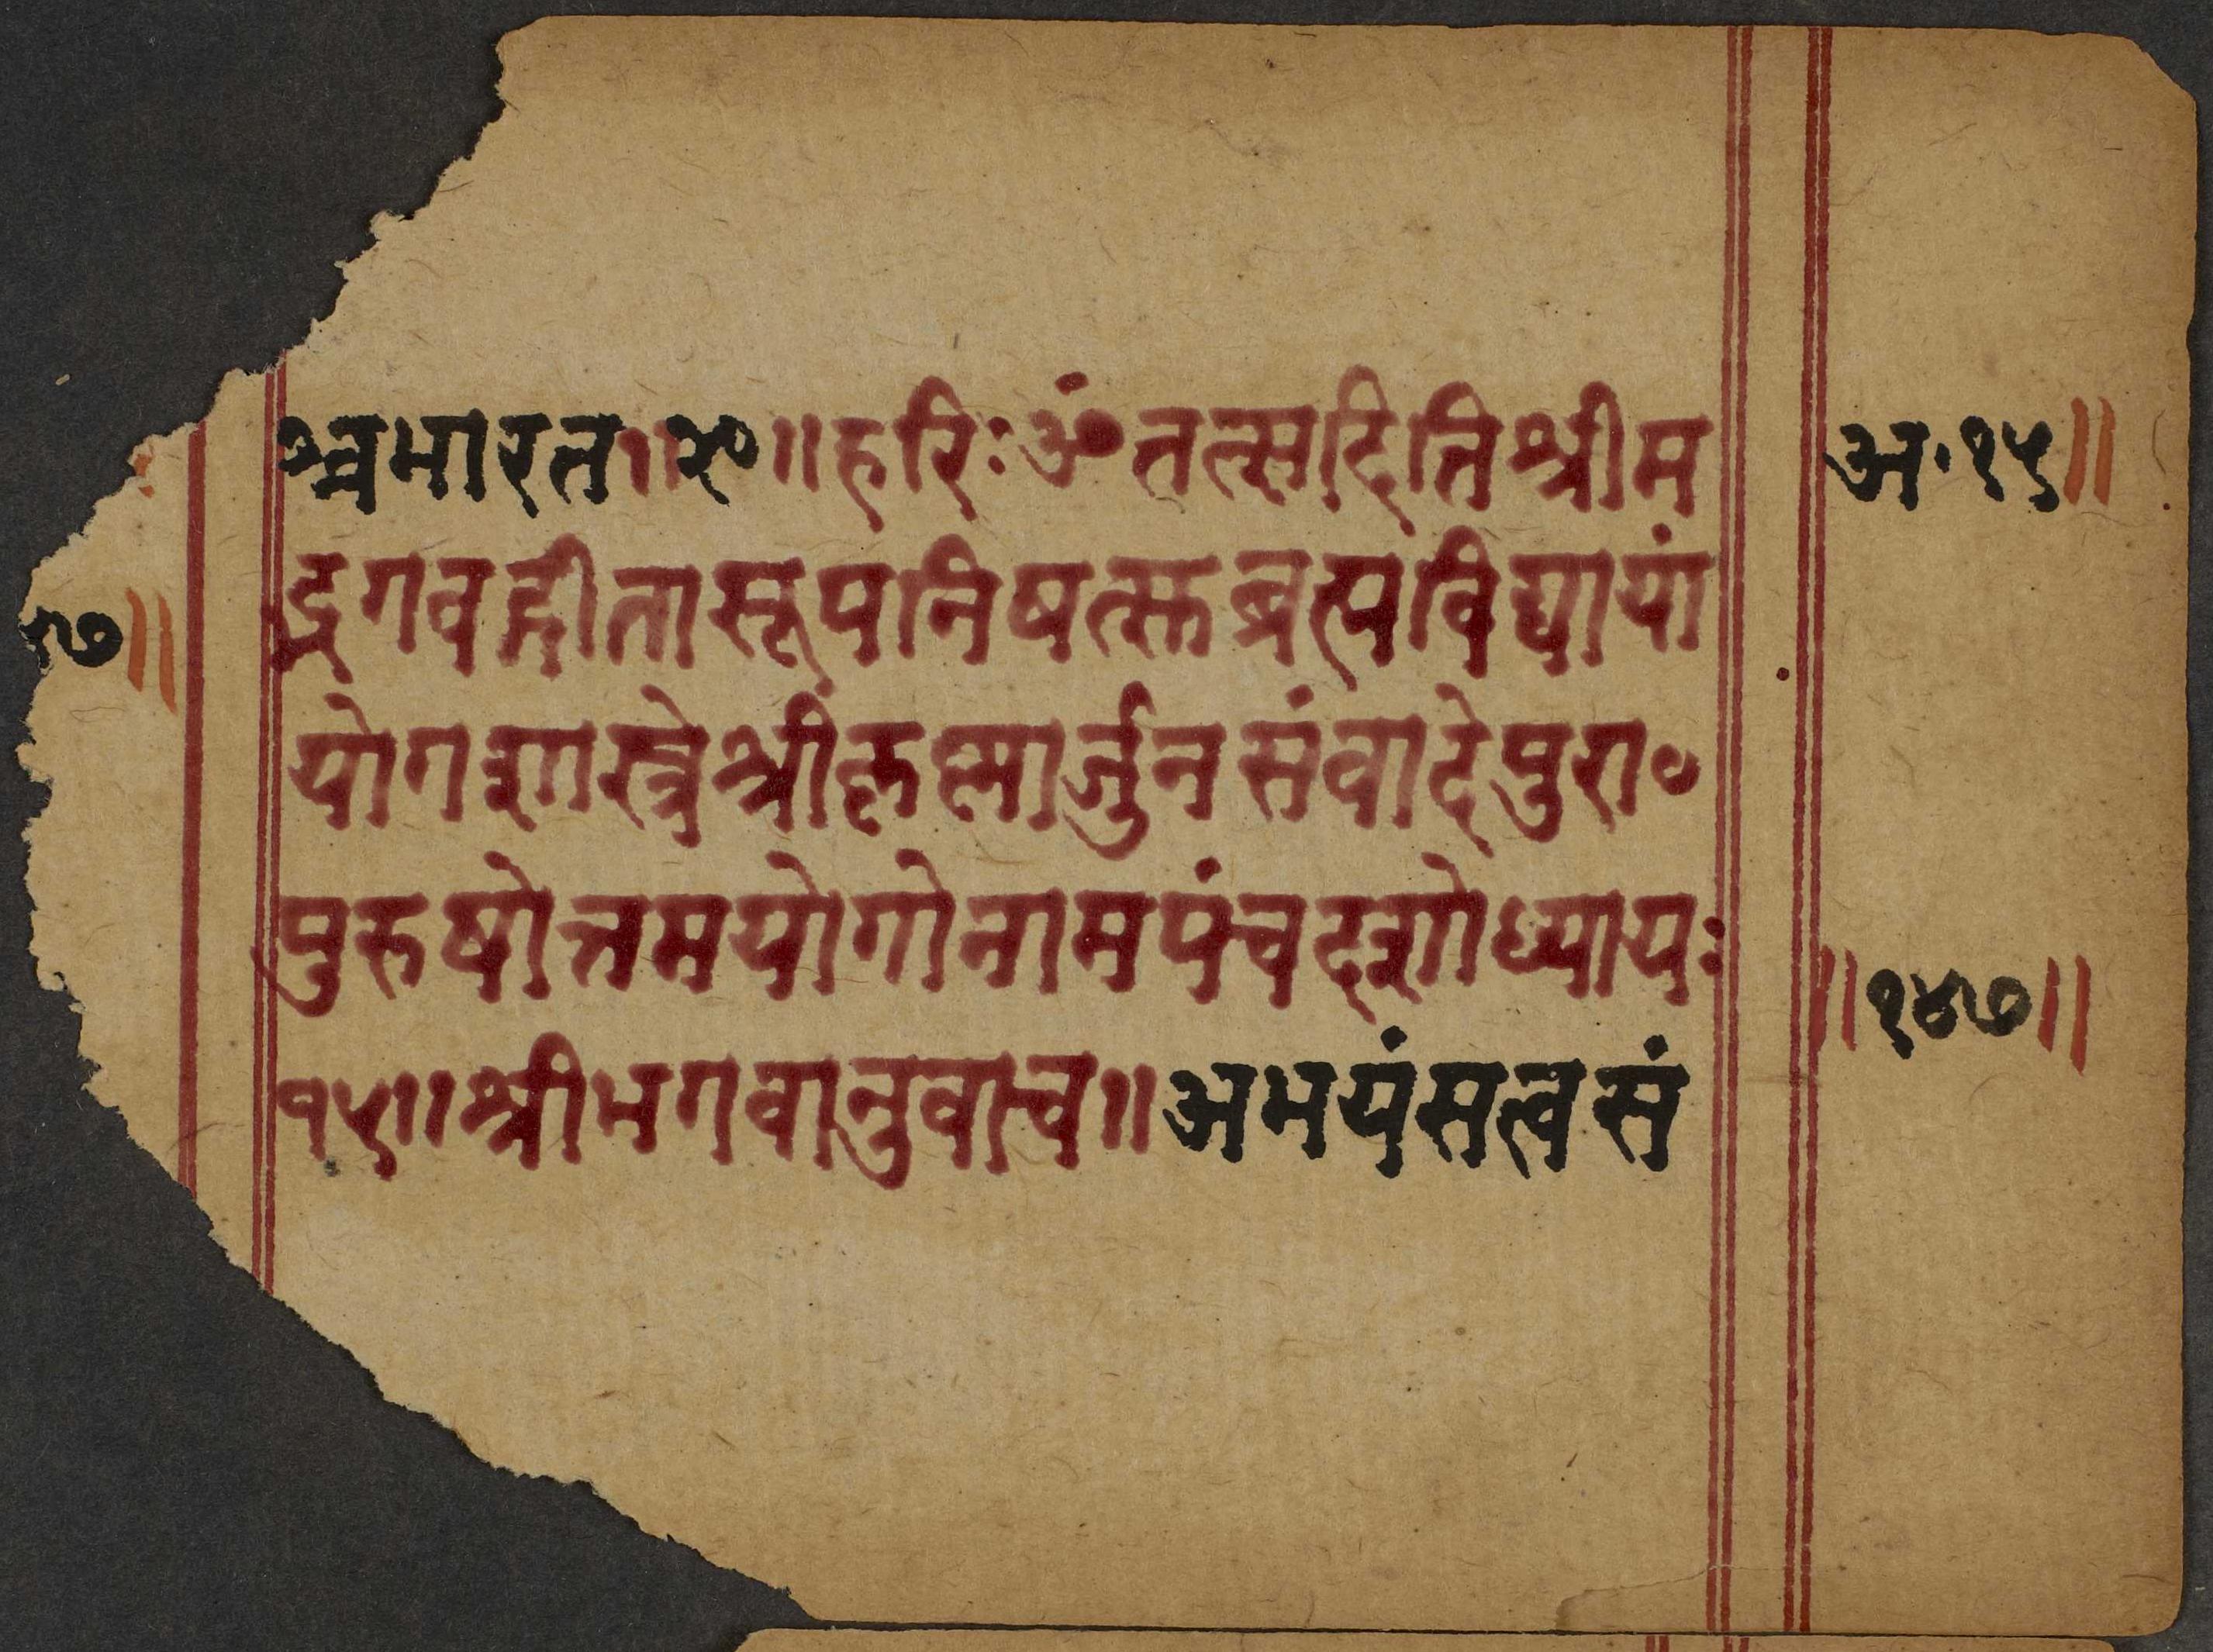 श्चभारत॥२०॥हरिःॐतत्सदितिश्रीम
अ॰१५॥
द्भगवद्गीतासूपनिषत्सुब्रह्मविद्यायां
७॥
योगशास्त्रेश्रीकृष्णार्जुनसंवादेपुरा॰
पुरुषोत्तमयोगोनामपंचदशोध्यायः
॥१४७॥
१५॥श्रीभगवानुवाच॥अभयंसत्वसं